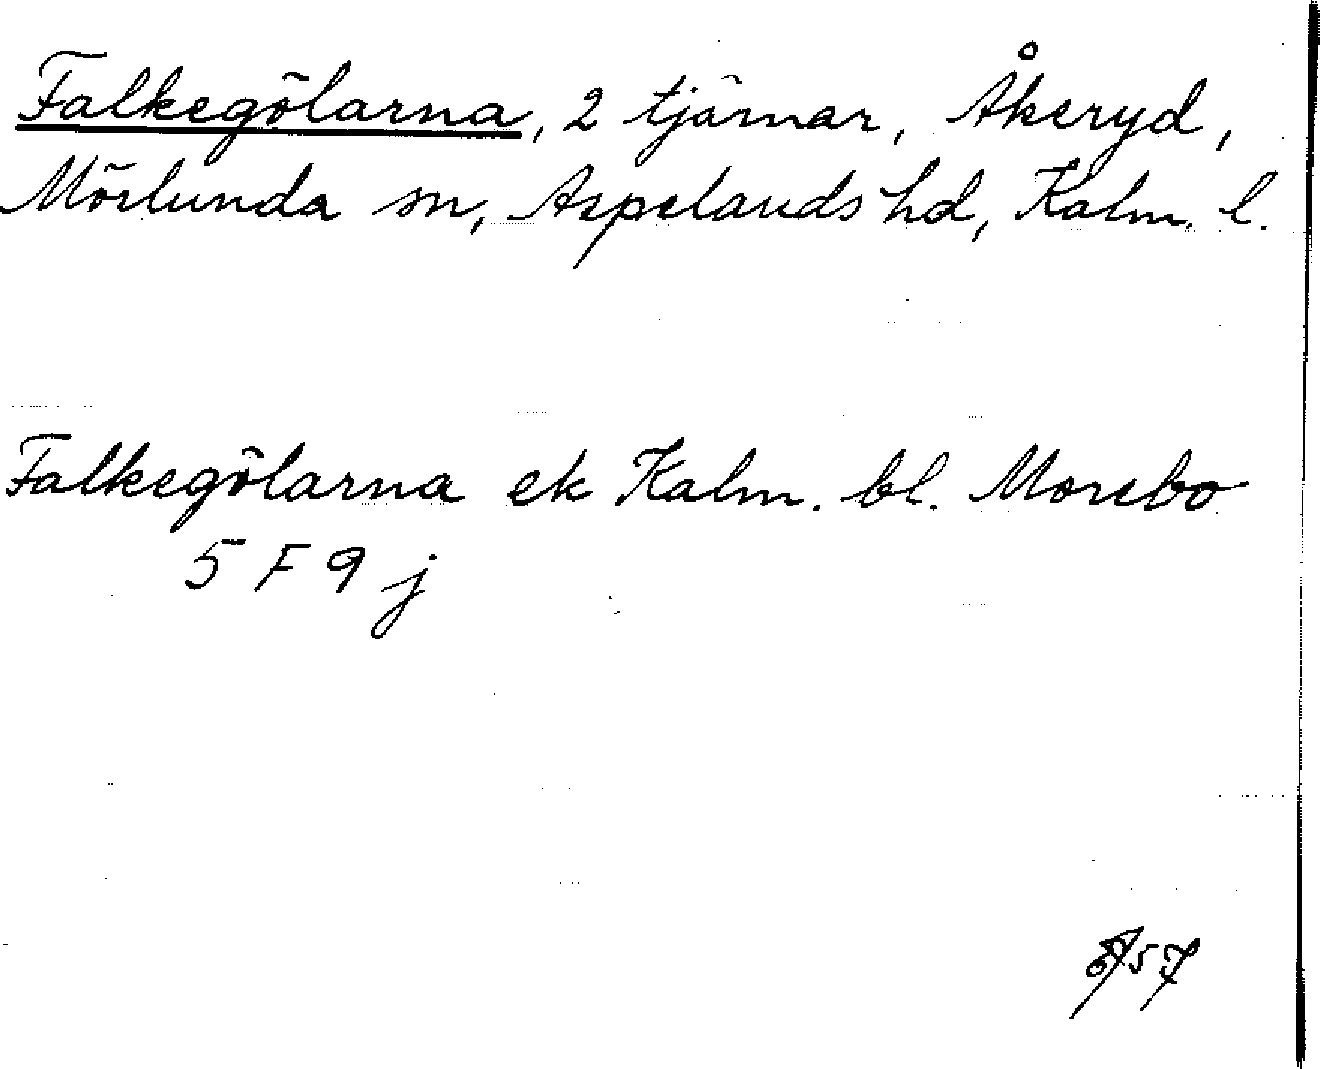 Falkegölarna, 2 tjärnar, Åkeryd,
Mörlunda sn, Aspelands hd, Kalm. l.
Falkegölarna ek Kalm. bl. Morebo
5 F 9 j